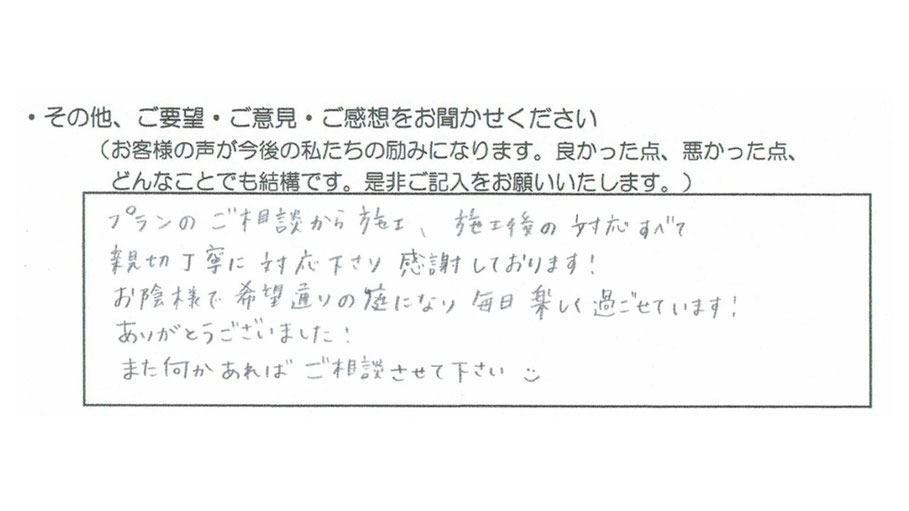 ・その他、ご要望・ご意見・ご感想をお聞かせください
（お客様の声が今後の私たちの励みになります。良かった点、悪かった点、
どんなことでも結構です。是非ご記入をお願いいたします。）
プランのご相談から施工、施工後の対応すべて
親切丁寧に対応下さり感謝しております！
お陰様で希望通りの庭になり毎日楽しく過ごせています！
ありがとうございました！
また何かあればご相談させて下さい